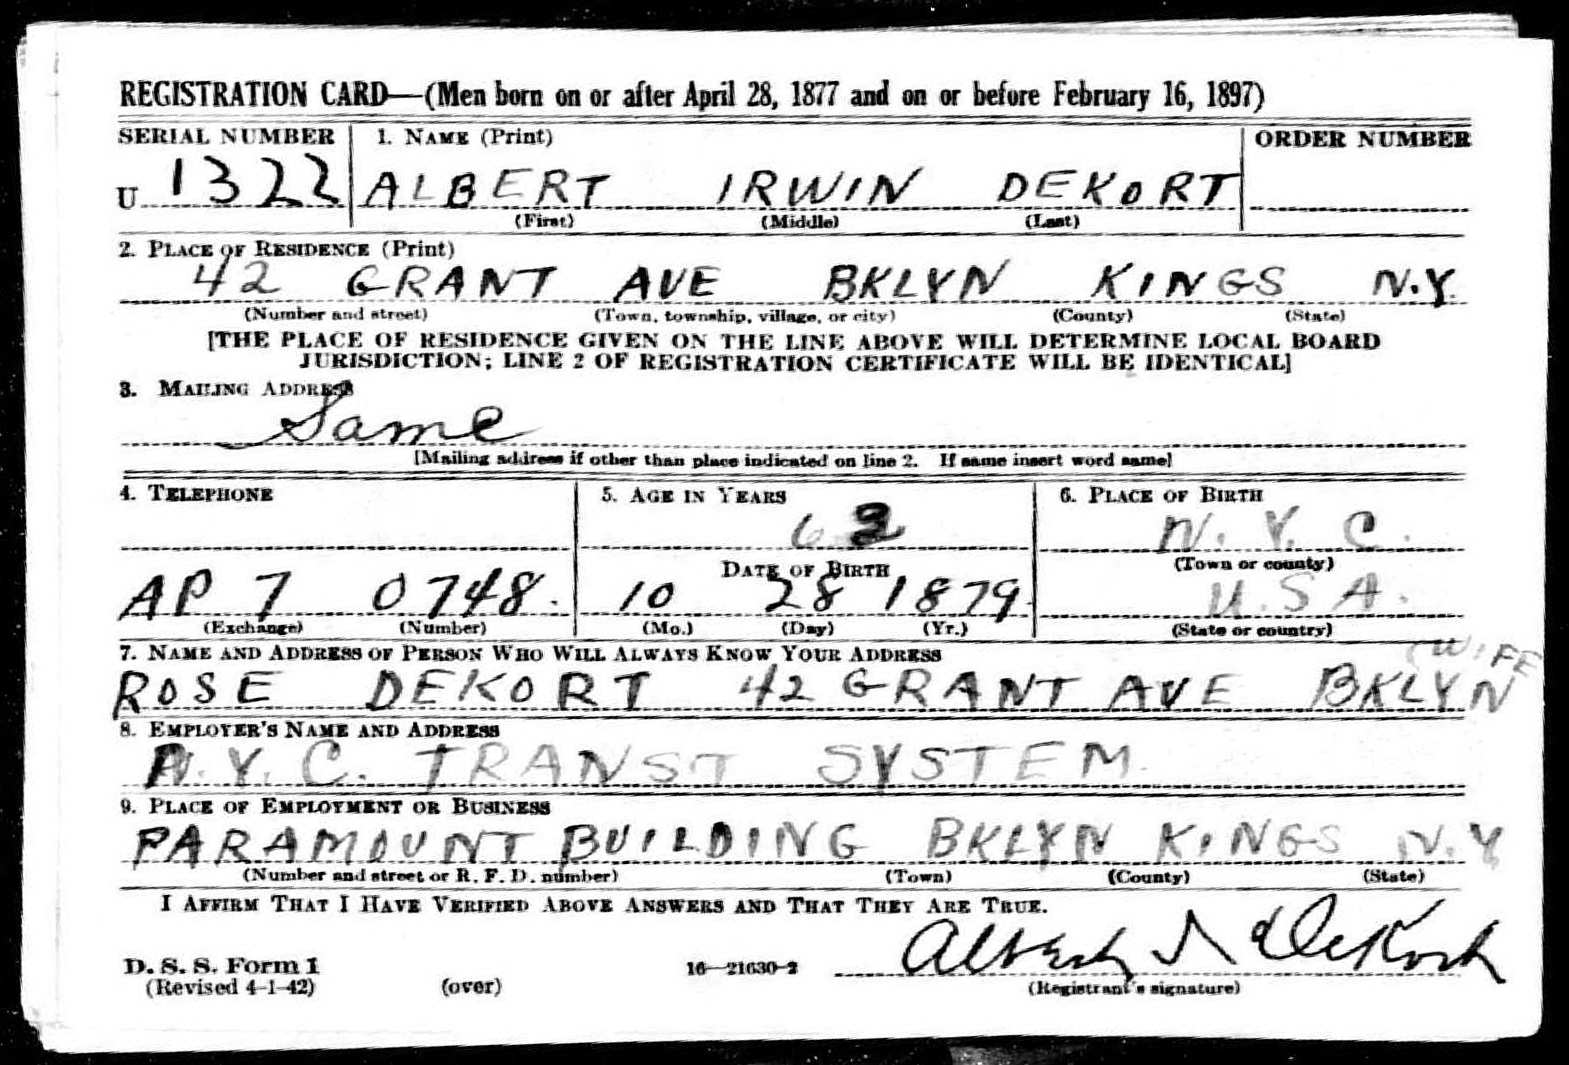 REGISTRATION CARD—(Men born on or after April 28, 1877 and on or before February 16, 1897)
SERIAL NUMBER 1. NAME (Print) ORDER NUMBER
U 1322 ALBERT IRWIN DEKORT
(First) (Middle) (Last)
2. PLACE OF RESIDENCE (Print)
42 GRANT AVE BKLYN KINGS N.Y.
(Number and street) (Town, township, village, or city) (County) (State)
[THE PLACE OF RESIDENCE GIVEN ON THE LINE ABOVE WILL DETERMINE LOCAL BOARD
JURISDICTION; LINE 2 OF REGISTRATION CERTIFICATE WILL BE IDENTICAL]
3. MAILING ADDRESS
Same
[Mailing address if other than place indicated on line 2. If same insert word same]
4. TELEPHONE 5. AGE IN YEARS 6. PLACE OF BIRTH
62 N. Y. C.
DATE OF BIRTH (Town or county)
AP 7 0748. 10 28 1879 U.S.A.
(Exchange) (Number) (Mo.) (Day) (Yr.) (State or country)
7. NAME AND ADDRESS OF PERSON WHO WILL ALWAYS KNOW YOUR ADDRESS WIFE
ROSE DEKORT 42 GRANT AVE BKLYN
8. EMPLOYER'S NAME AND ADDRESS
N.Y.C. TRANST SYSTEM
9. PLACE OF EMPLOYMENT OR BUSINESS
PARAMOUNT BUILDING BKLYN KINGS N.Y
(Number and street or R. F. D. number) (Town) (County) (State)
I AFFIRM THAT I HAVE VERIFIED ABOVE ANSWERS AND THAT THEY ARE TRUE.
D. S. S. Form 1 16—21630-2 Albert I DeKort
(Revised 4-1-42) (over) (Registrant's signature)